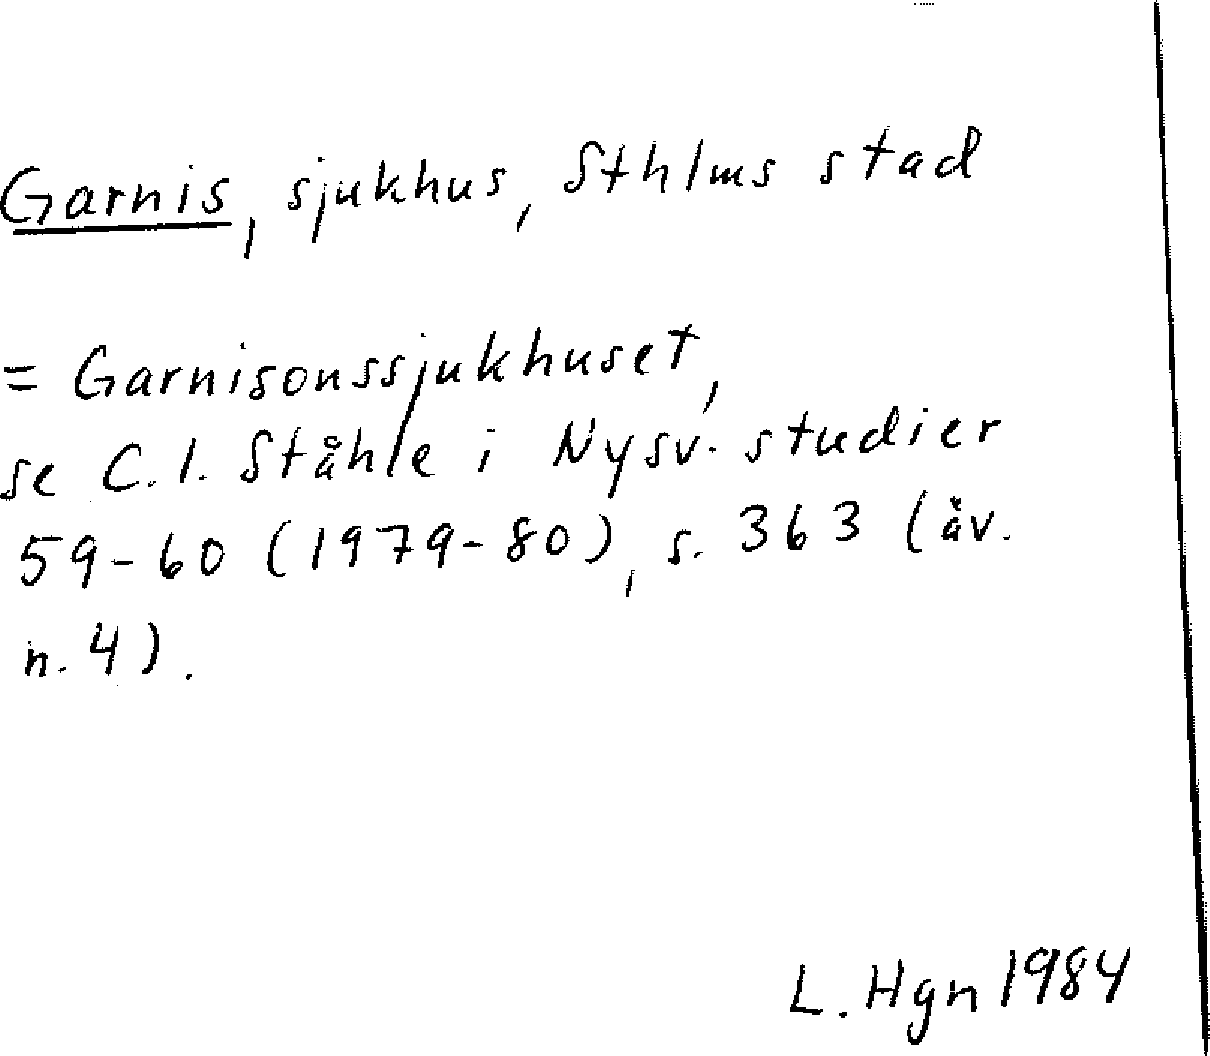 Garnis, sjukhus, Sthlms stad
= Garnisonssjukhuset,
se C.I. Ståhle i Nysv. studier
59-60 (1979-80), s. 363 (äv.
n. 4).
L. Hgn 1984